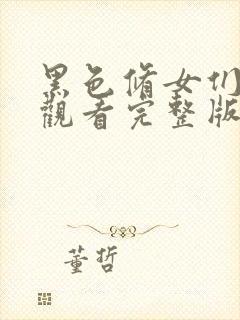 黑色脩女们
觀看完整版
董哲